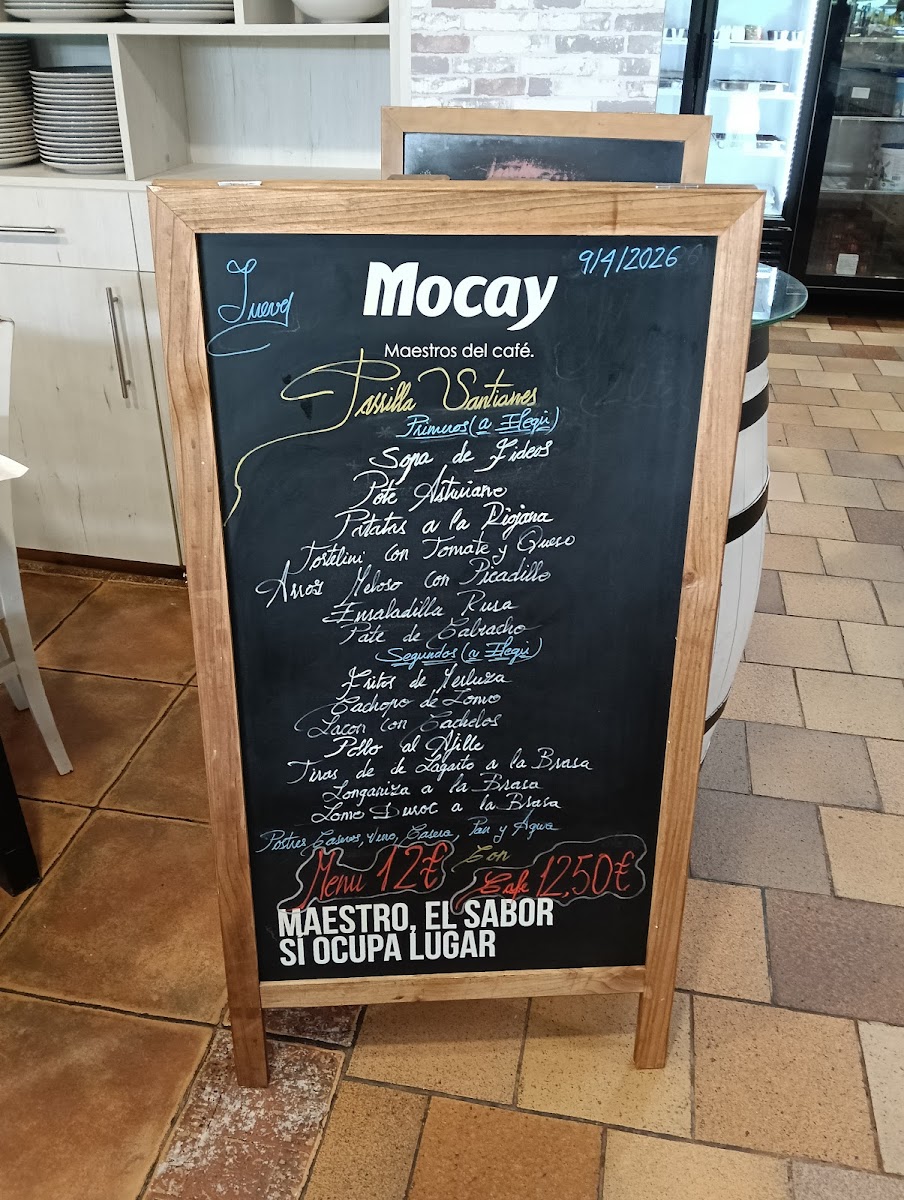 Jueves
9/4/2026
Mocay
Maestros del café.
Parrilla Santianes
Primeros (a Elegir)
Sopa de Fideos
Pote Asturiano
Patatas a la Riojana
Tortelini con Tomate y Queso
Arros Meloso con Picadillo
Ensaladilla Rusa
Pate de Cabracho
Segundos (a Elegir)
Fritos de Merluza
Cachopo de Lomo
Lacon con Cachelos
Pollo al Ajillo
Tiras de de Lagarto a la Brasa
Longaniza a la Brasa
Lomo Duroc a la Brasa
Postres Caseros, Vino, Casera, Pan y Agua
Menu 12€ Con Cafe 12,50€
MAESTRO, EL SABOR
SÍ OCUPA LUGAR